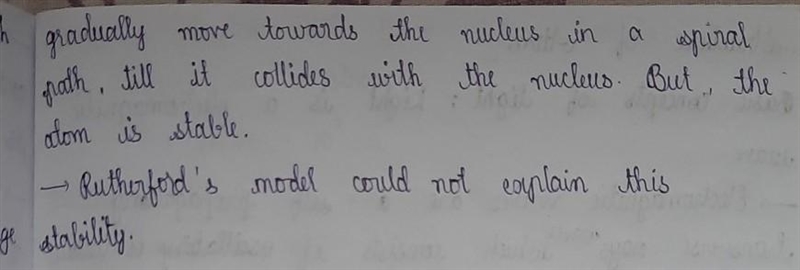 gradually move towards the nucleus in a spiral
path, till it collides with the nucleus. But, the
atom is stable.
→ Rutherford's model could not explain this
stability.